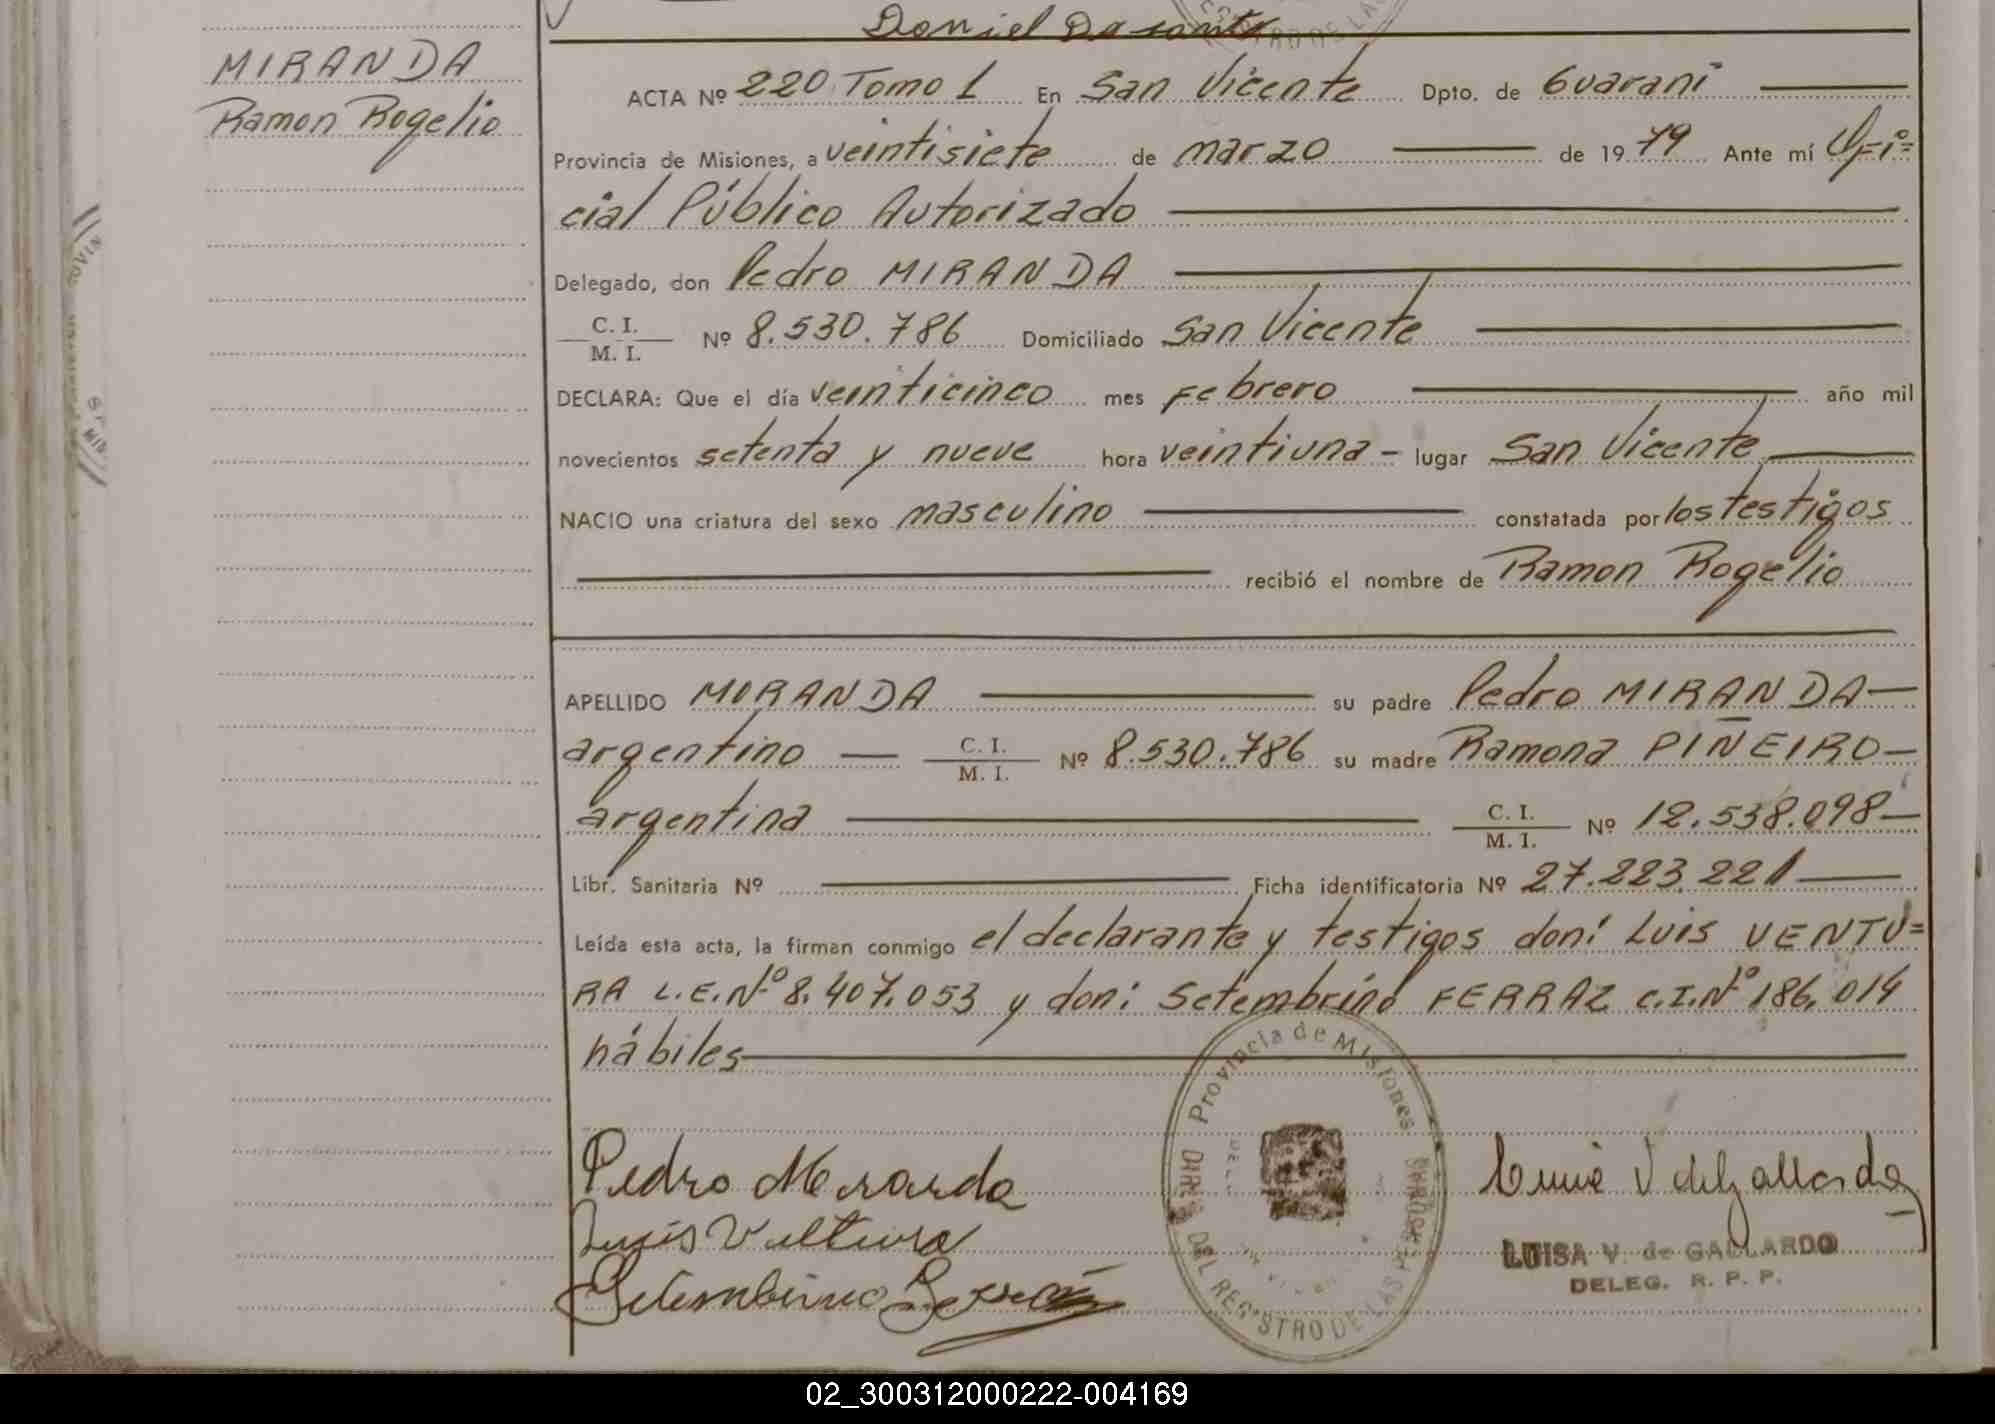 Daniel Dasanto
MIRANDA
Ramon Rogelio
ACTA Nº 220 Tomo 1 En San Vicente Dpto. de Guaraní
Provincia de Misiones, a veintisiete de marzo de 1979 Ante mí Ofi=
cial Público Autorizado
Delegado, don Pedro MIRANDA
C. I.
M. I. Nº 8.530.786 Domiciliado San Vicente
DECLARA: Que el día veinticinco mes Febrero año mil
novecientos setenta y nueve hora veintiuna - lugar San Vicente
NACIO una criatura del sexo masculino constatada por los testigos
recibió el nombre de Ramon Rogelio
APELLIDO MIRANDA su padre Pedro MIRANDA
argentino C. I.
M. I. Nº 8.530.786 su madre Ramona PIÑEIRO
argentina C. I.
M. I. Nº 12.538.098
Libr. Sanitaria Nº Ficha identificatoria Nº 27.223.221
Leída esta acta, la firman conmigo el declarante y testigos don: Luis VENTU=
RA L.E.Nº 8.407.053 y don: Setembrino FERRAZ C.I.Nº 186.014
hábiles
Provincia de Misiones
DIRC. DEL REGISTRO DE LAS PERSONAS
Pedro Meranda
Luis
Setembrino
LUISA V. de GALLARDO
DELEG. R. P. P.
02_300312000222-004169